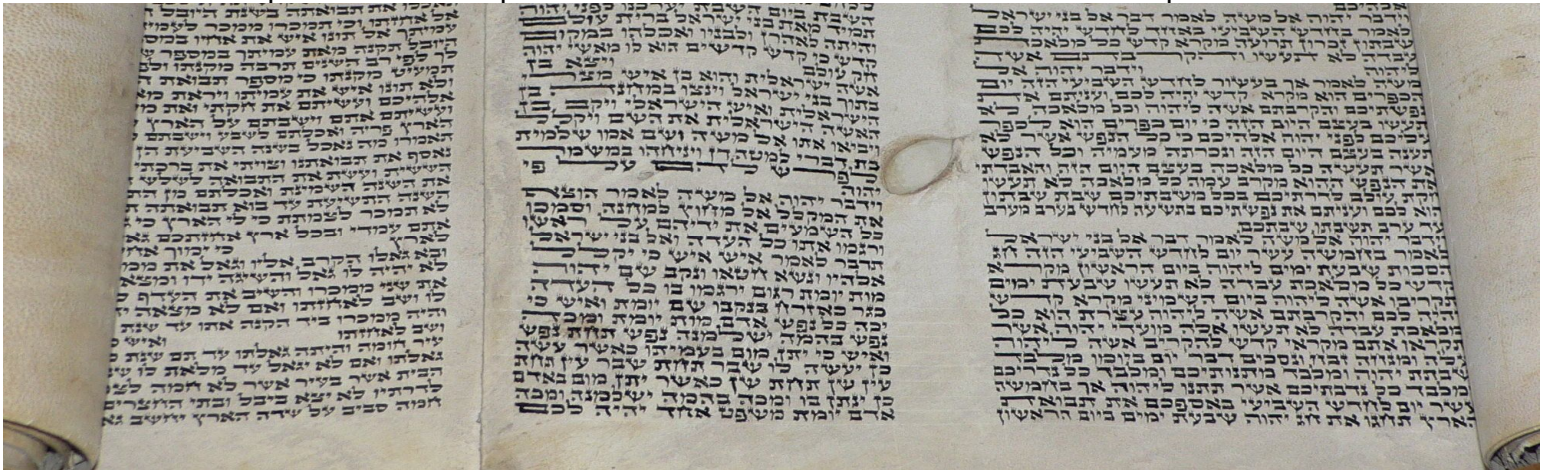 אלהיכם
וידבר יהוה אל משה לאמר דבר אל בני ישראל
לאמר בחדש השביעי באחד לחדש יהיה לכם
שבתון זכרון תרועה מקרא קדש כל מלאכת
עבדה לא תעשו והקרבתם אשה
ליהוה וידבר יהוה אל
משה לאמר אך בעשור לחדש השביעי הזה יום
הכפרים הוא מקרא קדש יהיה לכם ועניתם את
נפשתיכם והקרבתם אשה ליהוה וכל מלאכה לא
תעשו בעצם היום הזה כי יום כפרים הוא לכפר
עליכם לפני יהוה אלהיכם כי כל הנפש אשר לא
תענה בעצם היום הזה ונכרתה מעמיה וכל הנפש
אשר תעשה כל מלאכה בעצם היום הזה והאבדתי
את הנפש ההוא מקרב עמה כל מלאכה לא תעשו
חקת עולם לדרתיכם בכל משבתיכם שבת שבתון
הוא לכם ועניתם את נפשתיכם בתשעה לחדש בערב מערב
עד ערב תשבתו שבתכם
וידבר יהוה אל משה לאמר דבר אל בני ישראל
לאמר בחמשה עשר יום לחדש השביעי הזה חג
הסכות שבעת ימים ליהוה ביום הראשון מקרא
קדש כל מלאכת עבדה לא תעשו שבעת ימים
תקריבו אשה ליהוה ביום השמיני מקרא קדש
יהיה לכם והקרבתם אשה ליהוה עצרת הוא כל
מלאכת עבדה לא תעשו אלה מועדי יהוה אשר
תקראו אתם מקראי קדש להקריב אשה ליהוה
עלה ומנחה זבח ונסכים דבר יום ביומו מלבד
שבתת יהוה ומלבד מתנותיכם ומלבד כל נדריכם
ומלבד כל נדבתיכם אשר תתנו ליהוה אך בחמשה
עשר יום לחדש השביעי באספכם את תבואת
הארץ תחגו את חג יהוה שבעת ימים ביום הראשון
השבת ביום השבת יערכנו לפני יהוה
תמיד מאת בני ישראל ברית עולם
והיתה לאהרן ולבניו ואכלהו במקום
קדש כי קדש קדשים הוא לו מאשי יהוה
חק עולם ויצא בן
אשה ישראלית והוא בן איש מצרי
בתוך בני ישראל וינצו במחנה בן
הישראלית ואיש הישראלי ויקב בן
האשה הישראלית את השם ויקלל
ויביאו אתו אל משה ושם אמו שלמית
בת דברי למטה דן ויניחהו במשמר
לפרש להם על פי
יהוה
וידבר יהוה אל משה לאמר הוצא
את המקלל אל מחוץ למחנה וסמכו
כל השמעים את ידיהם על ראשו
ורגמו אתו כל העדה ואל בני ישראל
תדבר לאמר איש איש כי יקלל
אלהיו ונשא חטאו ונקב שם יהוה
מות יומת רגום ירגמו בו כל העדה
כגר כאזרח בנקבו שם יומת ואיש כי
יכה כל נפש אדם מות יומת ומכה
נפש בהמה ישלמנה נפש תחת נפש
ואיש כי יתן מום בעמיתו כאשר עשה
כן יעשה לו שבר תחת שבר עין תחת
עין שן תחת שן כאשר יתן מום באדם
כן ינתן בו ומכה בהמה ישלמנה ומכה
אדם יומת משפט אחד יהיה לכם
תאכלו את תבואתה בשנת היובל
אל אחזתו וכי תמכרו ממכר לעמי
עמיתך אל תונו איש את אחיו במס
היובל תקנה מאת עמיתך במספר ש
לך לפי רב השנים תרבה מקנתו ולפ
תמעיט מקנתו כי מספר תבואת
ולא תונו איש את עמיתו ויראת מ
אלהיכם ועשיתם את חקתי ואת מ
ועשיתם אתם וישבתם על הארץ
הארץ פריה ואכלתם לשבע וישבתם
תאמרו מה נאכל בשנה השביעת הן
נאסף את תבואתנו וצויתי את ברכתי
הששית ועשת את התבואה לשלש
את השנה השמינת ואכלתם מן הת
השנה התשיעת עד בוא תבואתה ת
לא תמכר לצמתת כי לי הארץ כי ג
אתם עמדי ובכל ארץ אחזתכם גא
לארץ כי ימוך אח
ובא גאלו הקרב אליו וגאל את ממכ
לא יהיה לו גאל והשיגה ידו ומצא
את שני ממכרו והשיב את העדף
לו ושב לאחזתו ואם לא מצאה
והיה ממכרו ביד הקנה אתו עד שנת
ושב לאחזתו ואיש כ
עיר חומה והיתה גאלתו עד תם שנת
גאלתו ואם לא יגאל עד מלאת לו ש
הבית אשר בעיר אשר לא חמה לצמ
לדרתיו לא יצא ביבל ובתי החצרים
חמה סביב על שדה הארץ יחשב גא